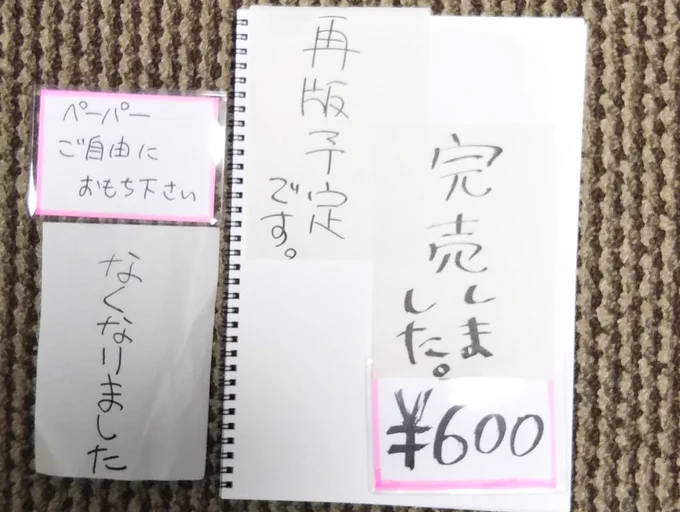 ペーパー
ご自由に
おもち下さい
なくなりました
再版予定
です。
完売しま
した。
¥600